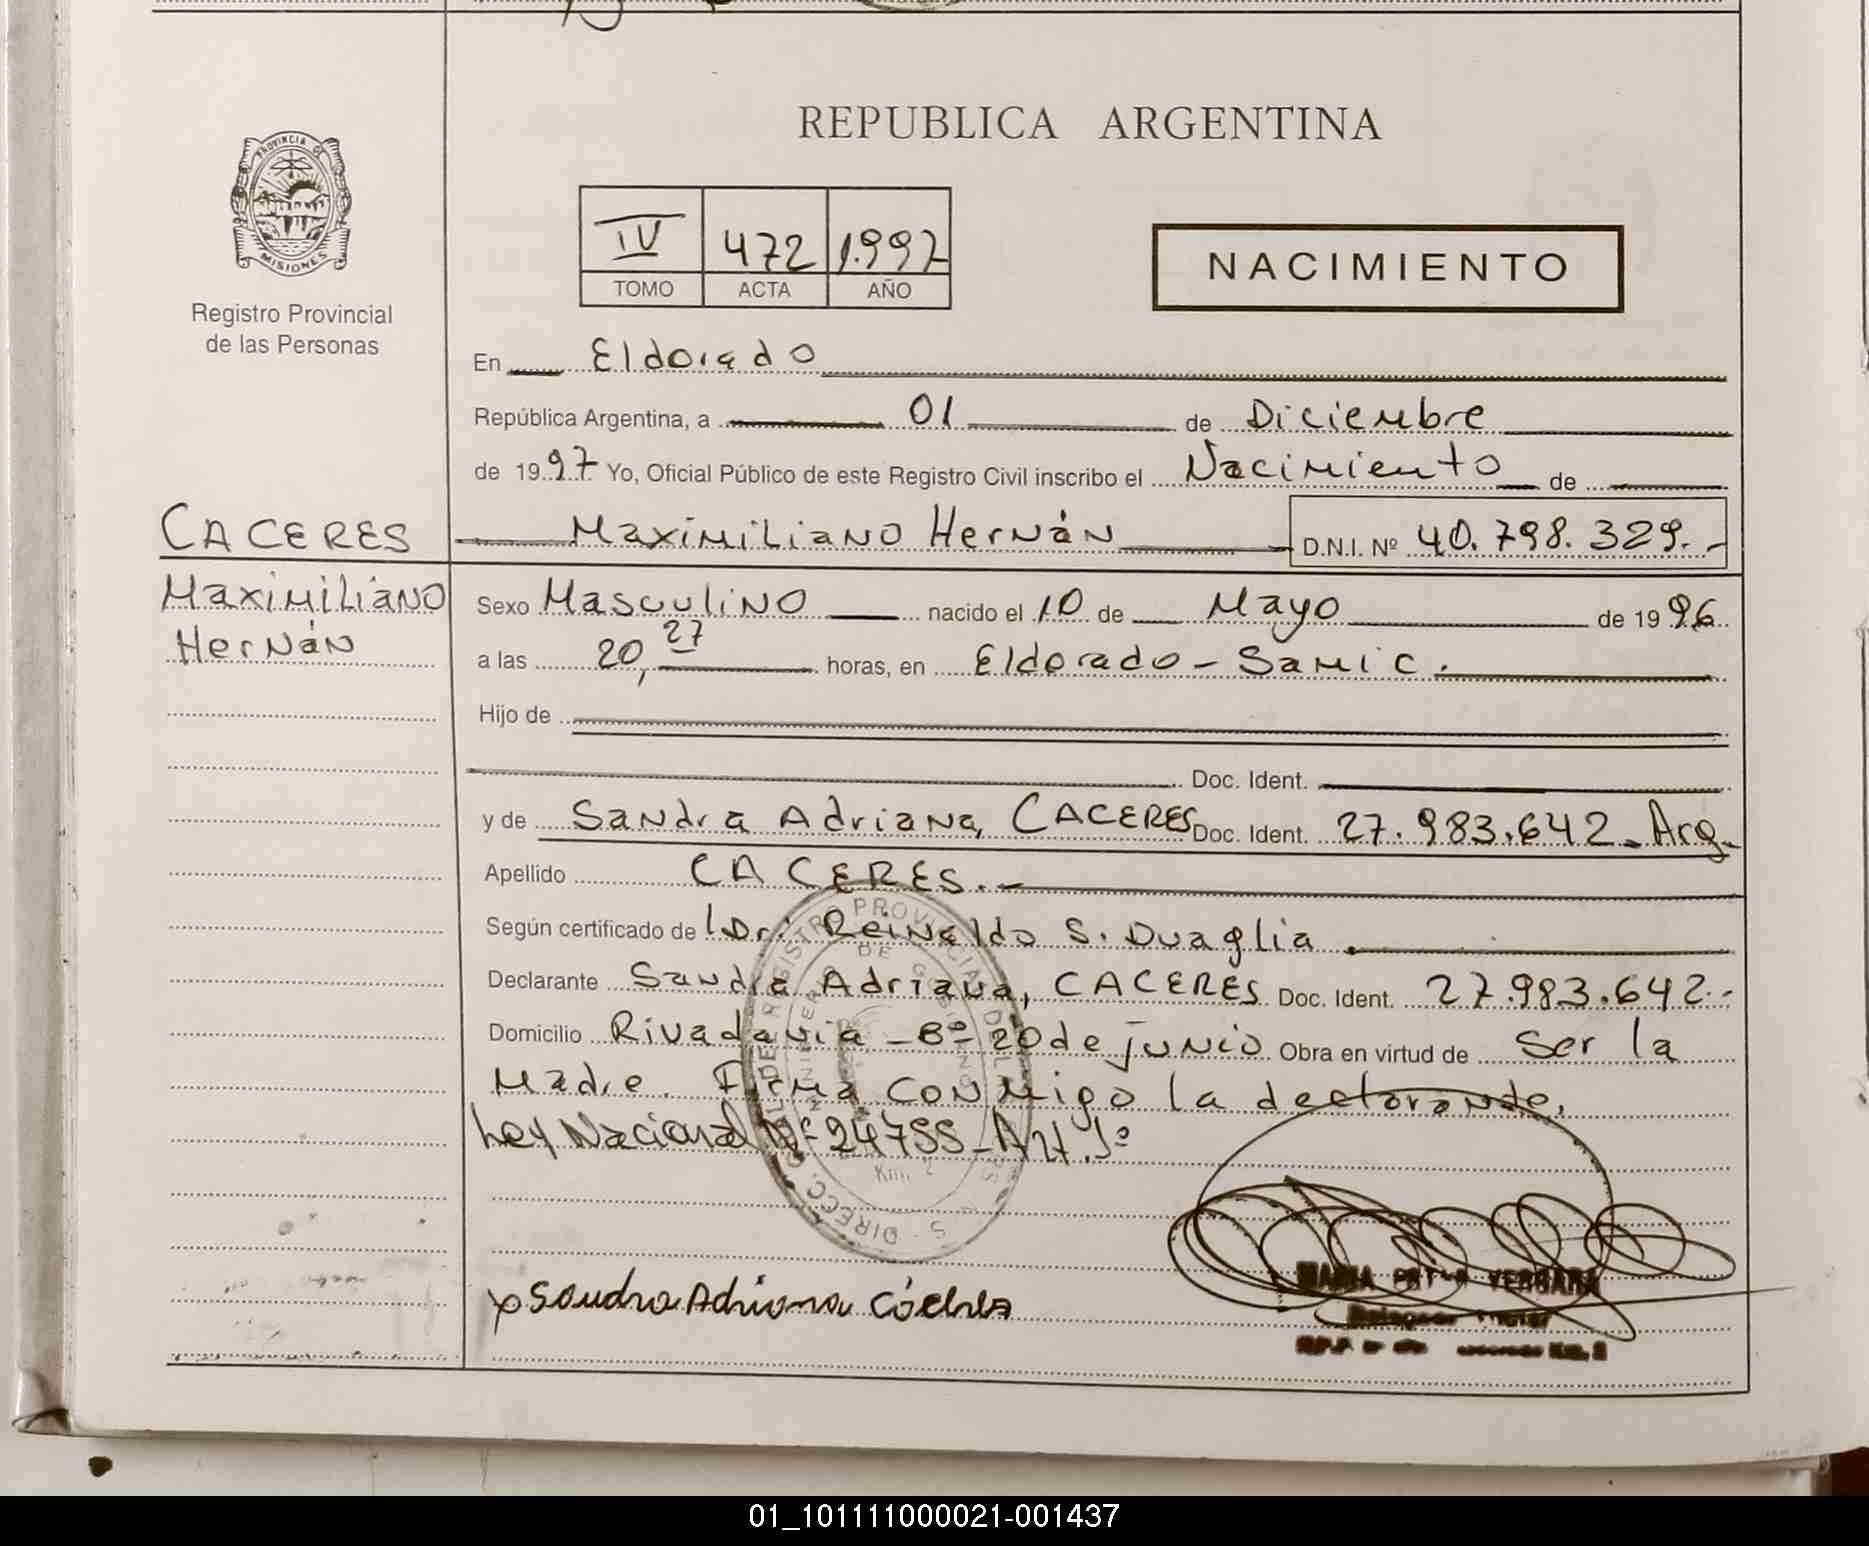 REPUBLICA ARGENTINA
PROVINCIA DE
MISIONES
Registro Provincial
de las Personas
IV 472 1.997
TOMO ACTA AÑO
NACIMIENTO
En Eldorado
República Argentina, a 01 de Diciembre
de 1997 Yo, Oficial Público de este Registro Civil inscribo el Nacimiento de
CACERES
Maximiliano Hernán D.N.I. Nº 40.798.329.-
Maximiliano
Hernán
Sexo Masculino nacido el 10 de Mayo de 1996
a las 20,27 horas, en Eldorado - Samic.
Hijo de
Doc. Ident.
y de Sandra Adriana, CACERES Doc. Ident. 27.983.642 - Arg.-
Apellido CACERES.-
Según certificado de Dr. Reinaldo S. Duaglia.
Declarante Sandra Adriana, CACERES Doc. Ident. 27.983.642.-
Domicilio Rivadavia - Bº 20 de junio Obra en virtud de Ser la
Madre. Firma conmigo la declarante.
Ley Nacional Nº 24755 - Art. 1º
Km. 2
x Sandra Adriana Cáceres
VERGARA
Km. 2
01_101111000021-001437